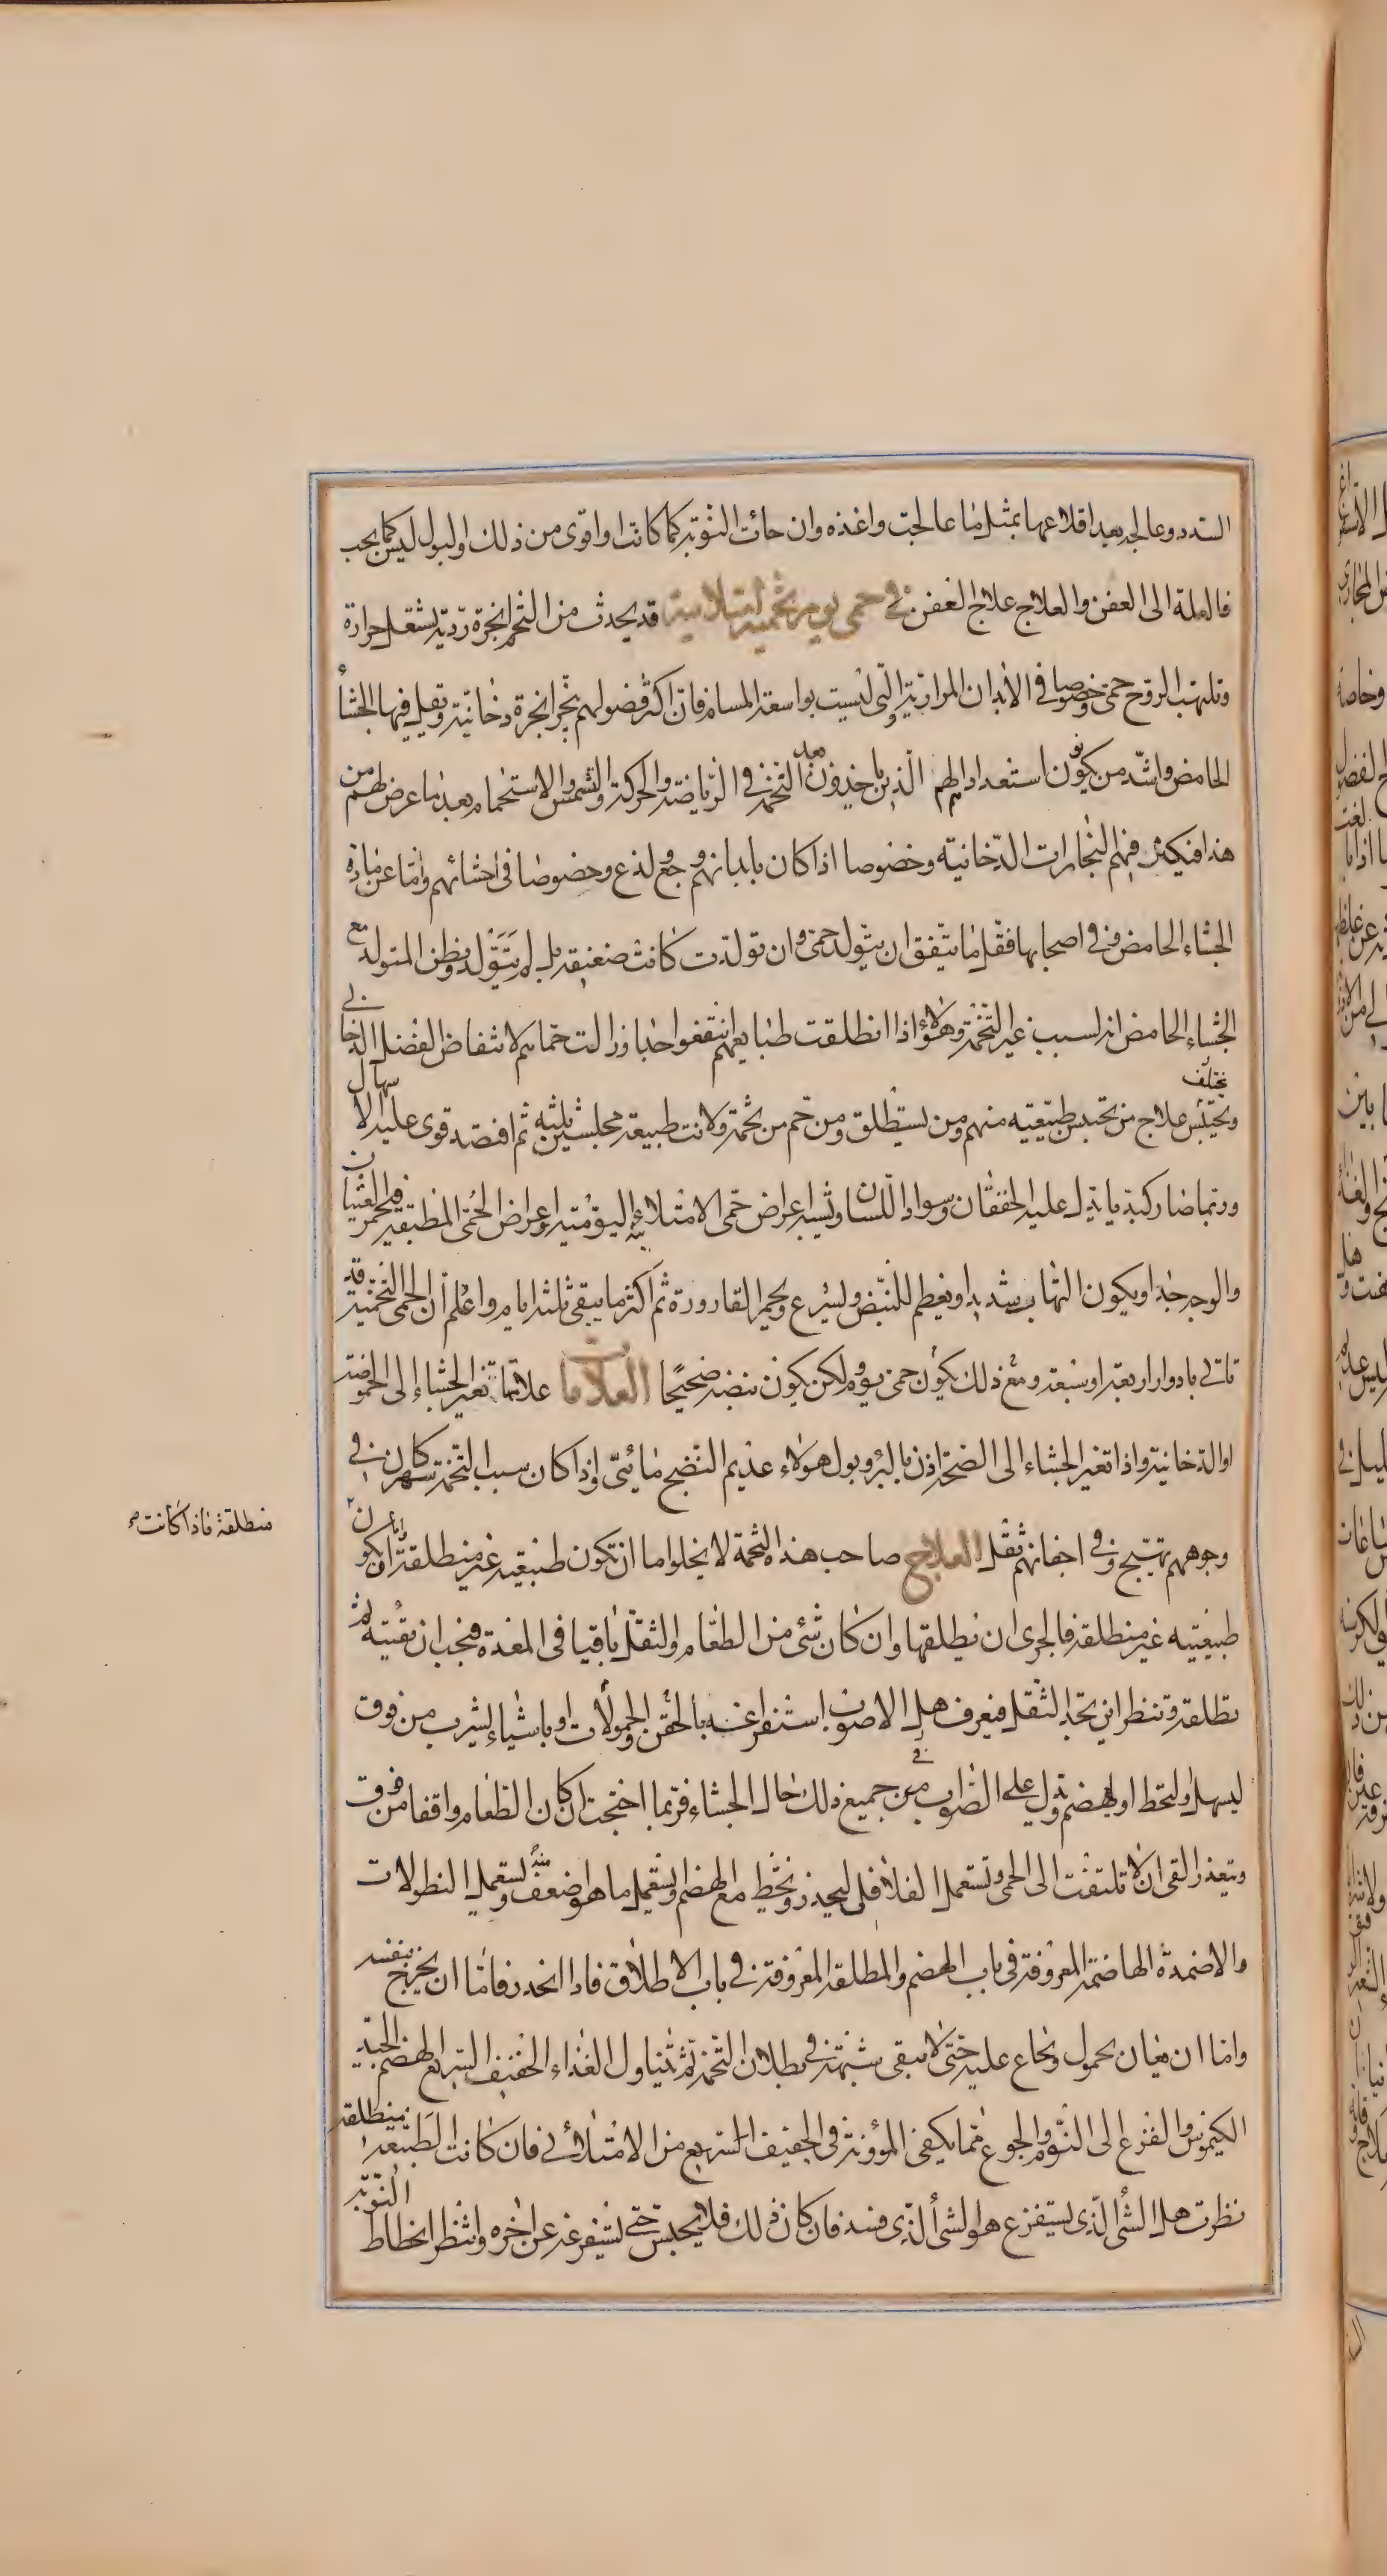 السدد وعالجه بعد اقلاعها بمثل ما عالجت واغذه وان جاءت النوبة كما كانت او اقوى من ذلك والبول ليس كما يجب
فالعلة الى العفن والعلاج علاج العفن في حمى يوم تخمية امتلائية قد يحدث من التخم ابخرة ردية تشتعل حرارة
وتلهب الروح حمى وخصوصا في الابدان المرارية والتي ليست بواسعة المسام فان اكثر فضولهم تبخر ابخرة دخانية ويقل فيها الجشأ
الحامض واشد من يكون استعدادا لهم الذين ياخذون بعد التخمة في الرياضة والحركة والشمس والاستحمام بعد ما عرض لهم من
هذا فيكثر فيهم البخارات الدخانية وخصوصا اذا كان بابدانهم وجع ولذع وخصوصا في احشائهم واما عن مادة
الجشاء الحامض وفي اصحابها فقل ما يتفق ان يتولد حمى وان تولدت كانت ضعيفة بل لم يتولد ويظن المتولد مع
الجشاء الحامض انه لسبب غير التخمة وهؤلاء اذا انطلقت طبايعهم انتفعوا جدا وزالت حماهم لانتفاض الفضل الدخاني
ويختلف علاج من تحتبس طبيعته منهم ومن يستطلق ومن حم من تخمة ولانت طبيعته مجلسين ثلثة ثم افتصد قوى عليه الاسهال
وربما ضار كبده يا يدل عليه الخفقان وسواد اللسان وتشبه اعراض حمى الامتلائية اليومية اعراض الحمى المطبقة فيحمر العينان
والوجه جدا ويكون التهاب شديد او يعظم للنبض ويسرع ويحمر القارورة ثم اكثر ما يبقى ثلثة ايام واعلم ان الحمى التخمية قد
تاتي بادوار اربعة او سبعة ومع ذلك يكون حمى يوم ولكن يكون نبضه صحيحا العلامات علاماتها تغير الجشاء الى الحموضة
او الدخانية واذا تغير الجشاء الى الصحة اذن بالبرء وبول هولاء عديم النضج مائي واذا كان سبب التخمة سهر كان في
وجوههم تهيج وفي اجفانهم ثقل العلاج صاحب هذه التخمة لا يخلوا اما ان تكون طبيعته غير منطلقة واما ان يكون
منطلقة فاذا كانت
طبيعته غير منطلقة فالحرى ان يطلقها وان كان شئ من الطعام والثقل باقيا في المعدة فيجب ان تقيئه ثم
تطلقه وتنظر اين تجد الثقل فيعرف هل الاصوب استفراغه بالحقن والحمولات او باشياء يشرب من فوق
ليسهل ولتحط او لهضم ويدل على الصواب في من جميع ذلك حال الجشاء فربما احتجت ان كان الطعام واقفا من فوق
ويتعذر القى ان لا تلتفت الى الحمى وتستعمل الفلافلى ليحدر وتحط مع الهضم وتستعمل ما هو اضعف منه وتستعمل النطولات
والاضمدة الهاضمة المعروفة في باب الهضم والمطلقة المعروفة في باب الاطلاق فاذا انحدر فاما ان يخرج بنفسه
واما ان يعان بحمول وتجاع عليه حتى لا يبقى شبهة في بطلان التخمة ثم تتناول الغذاء الخفيف السريع الهضم الجيد
الكيموس والفزع الى النوم والجوع مما يكفى المؤونة في الخفيف السريع من الامتلائي فان كانت الطبيعة منطلقة
نظرت هل الشئ الذي يستفرغ هو الشئ الذي فسد فان كان ذلك فلا يحبس حتى تستفرغه عن اخره وانتظر انحطاط النوبة